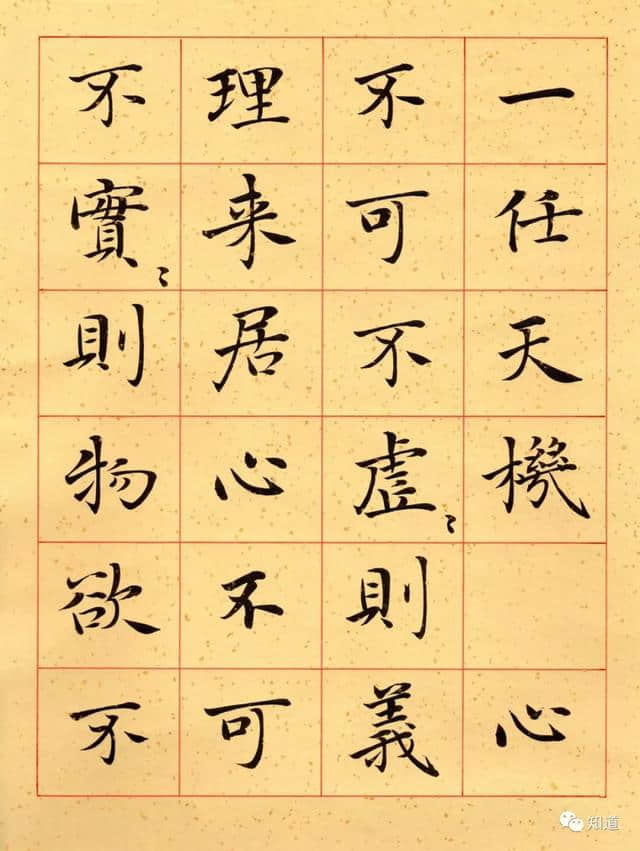 一任天機 心
不可不虛〻則義
理来居心不可
不實〻則物欲不
知道